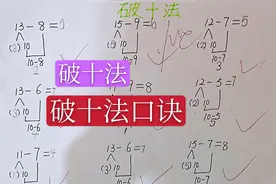 破十法
13-8=5
15-9=6
12-7=5
(3) 10
(5) 10
(2) 10
10-8
10-9
10-7
破十法
破十法口诀
13-6=7
=8
12-5=7
10
10-6
10-5
11-7=4
13-6=7
15-7=8
(1) 10
(3) 10
(5) 10
10-7
10-6
10-7